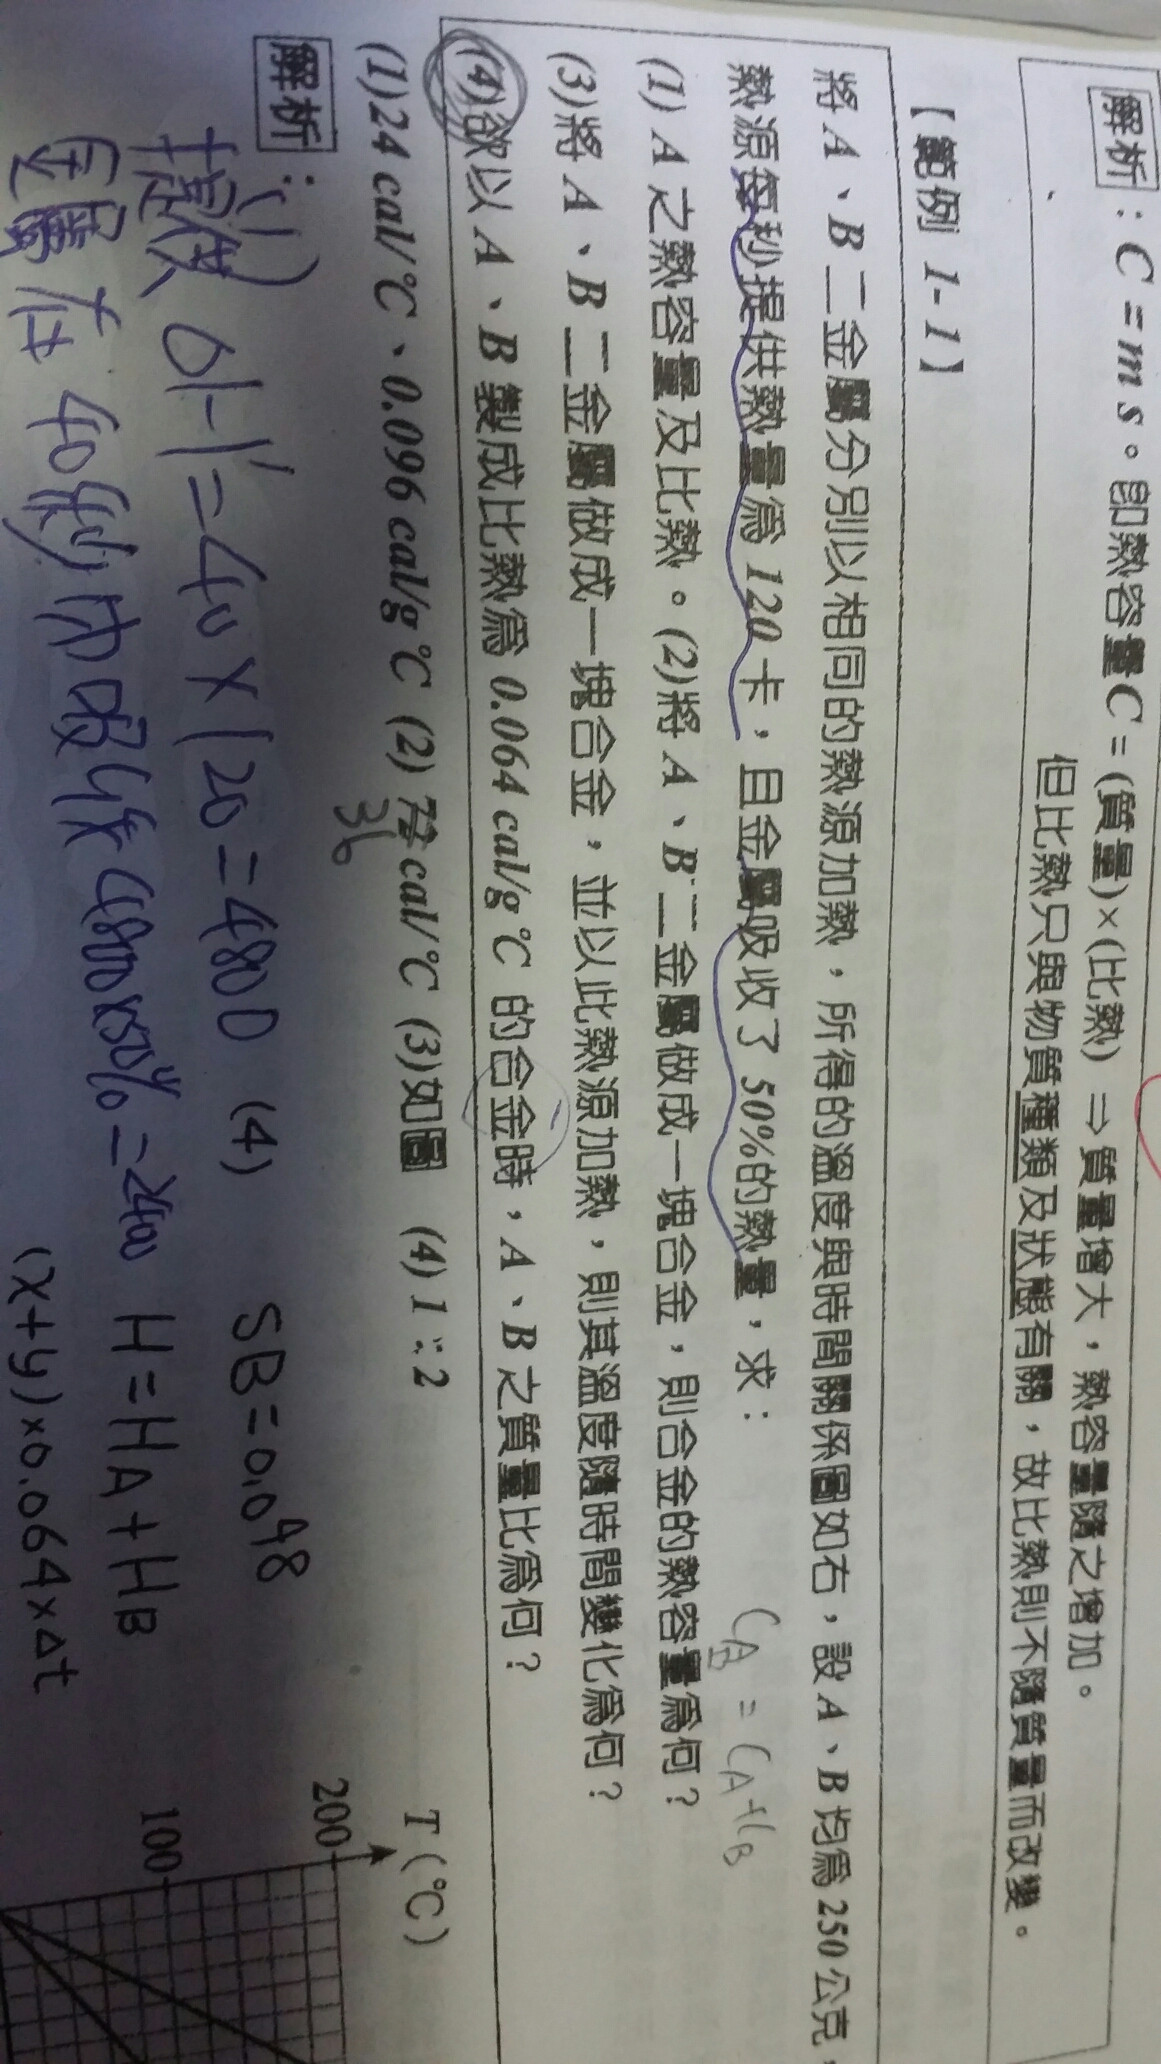 解析：C = m s。即熱容量C = (質量)×(比熱) ⇒ 質量增大，熱容量隨之增加。
但比熱只與物質種類及狀態有關，故比熱則不隨質量而改變。
【範例 1-1】
將 A、B 二金屬分別以相同的熱源加熱，所得的溫度與時間關係圖如右，設 A、B 均為 250 公克，
熱源每秒提供熱量為 120 卡，且金屬吸收了 50%的熱量，求：
(1) A 之熱容量及比熱。(2)將 A、B 二金屬做成一塊合金，則合金的熱容量為何？
(3)將 A、B 二金屬做成一塊合金，並以此熱源加熱，則其溫度隨時間變化為何？
(4)欲以 A、B 製成比熱為 0.064 cal/g℃ 的合金時，A、B 之質量比為何？
(1)24 cal/℃、0.096 cal/g℃ (2) 72 cal/℃ (3)如圖 (4) 1：2
36
解析：
(1)
提供 0-1' = 40 × 120 = 4800
金屬在 40秒內吸收 4800×50% = 2400
(4) SB = 0.048
H = HA + HB
(x+y)×0.064×Δt
T (℃)
200
100